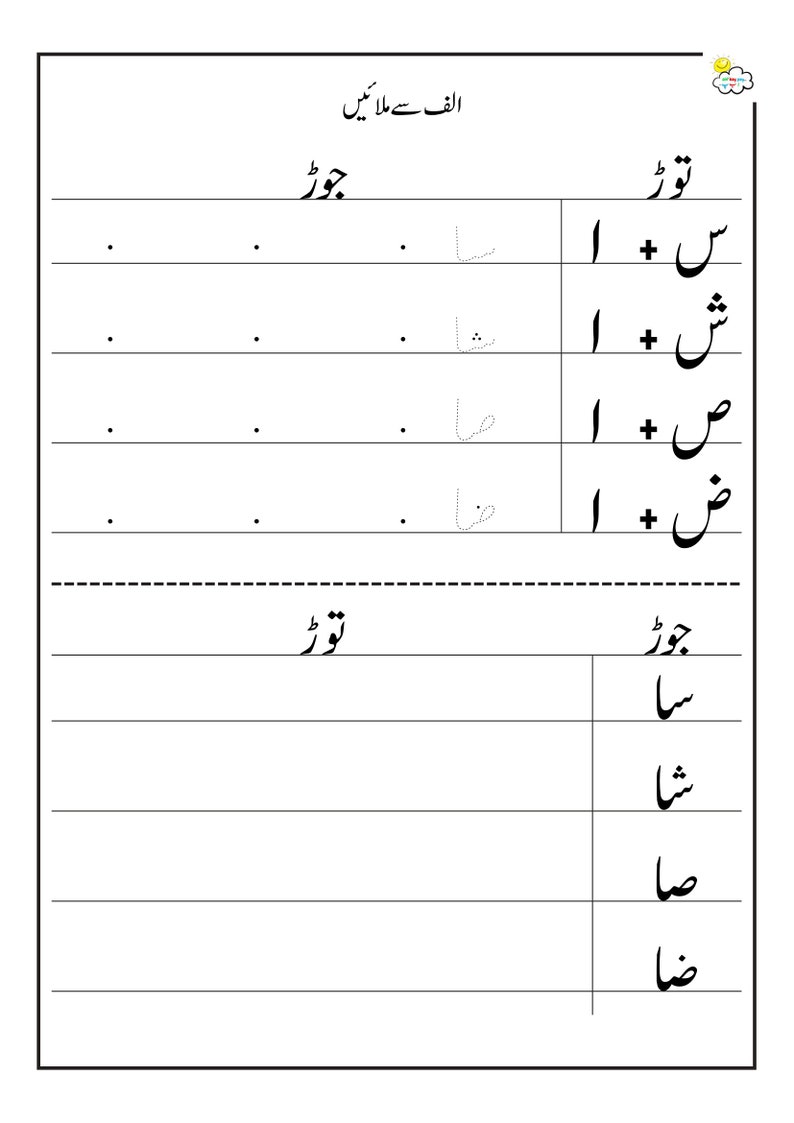 الف سے ملائیں
توڑ جوڑ
س + ا سا
ش + ا شا
ص + ا صا
ض + ا ضا
جوڑ توڑ
سا
شا
صا
ضا